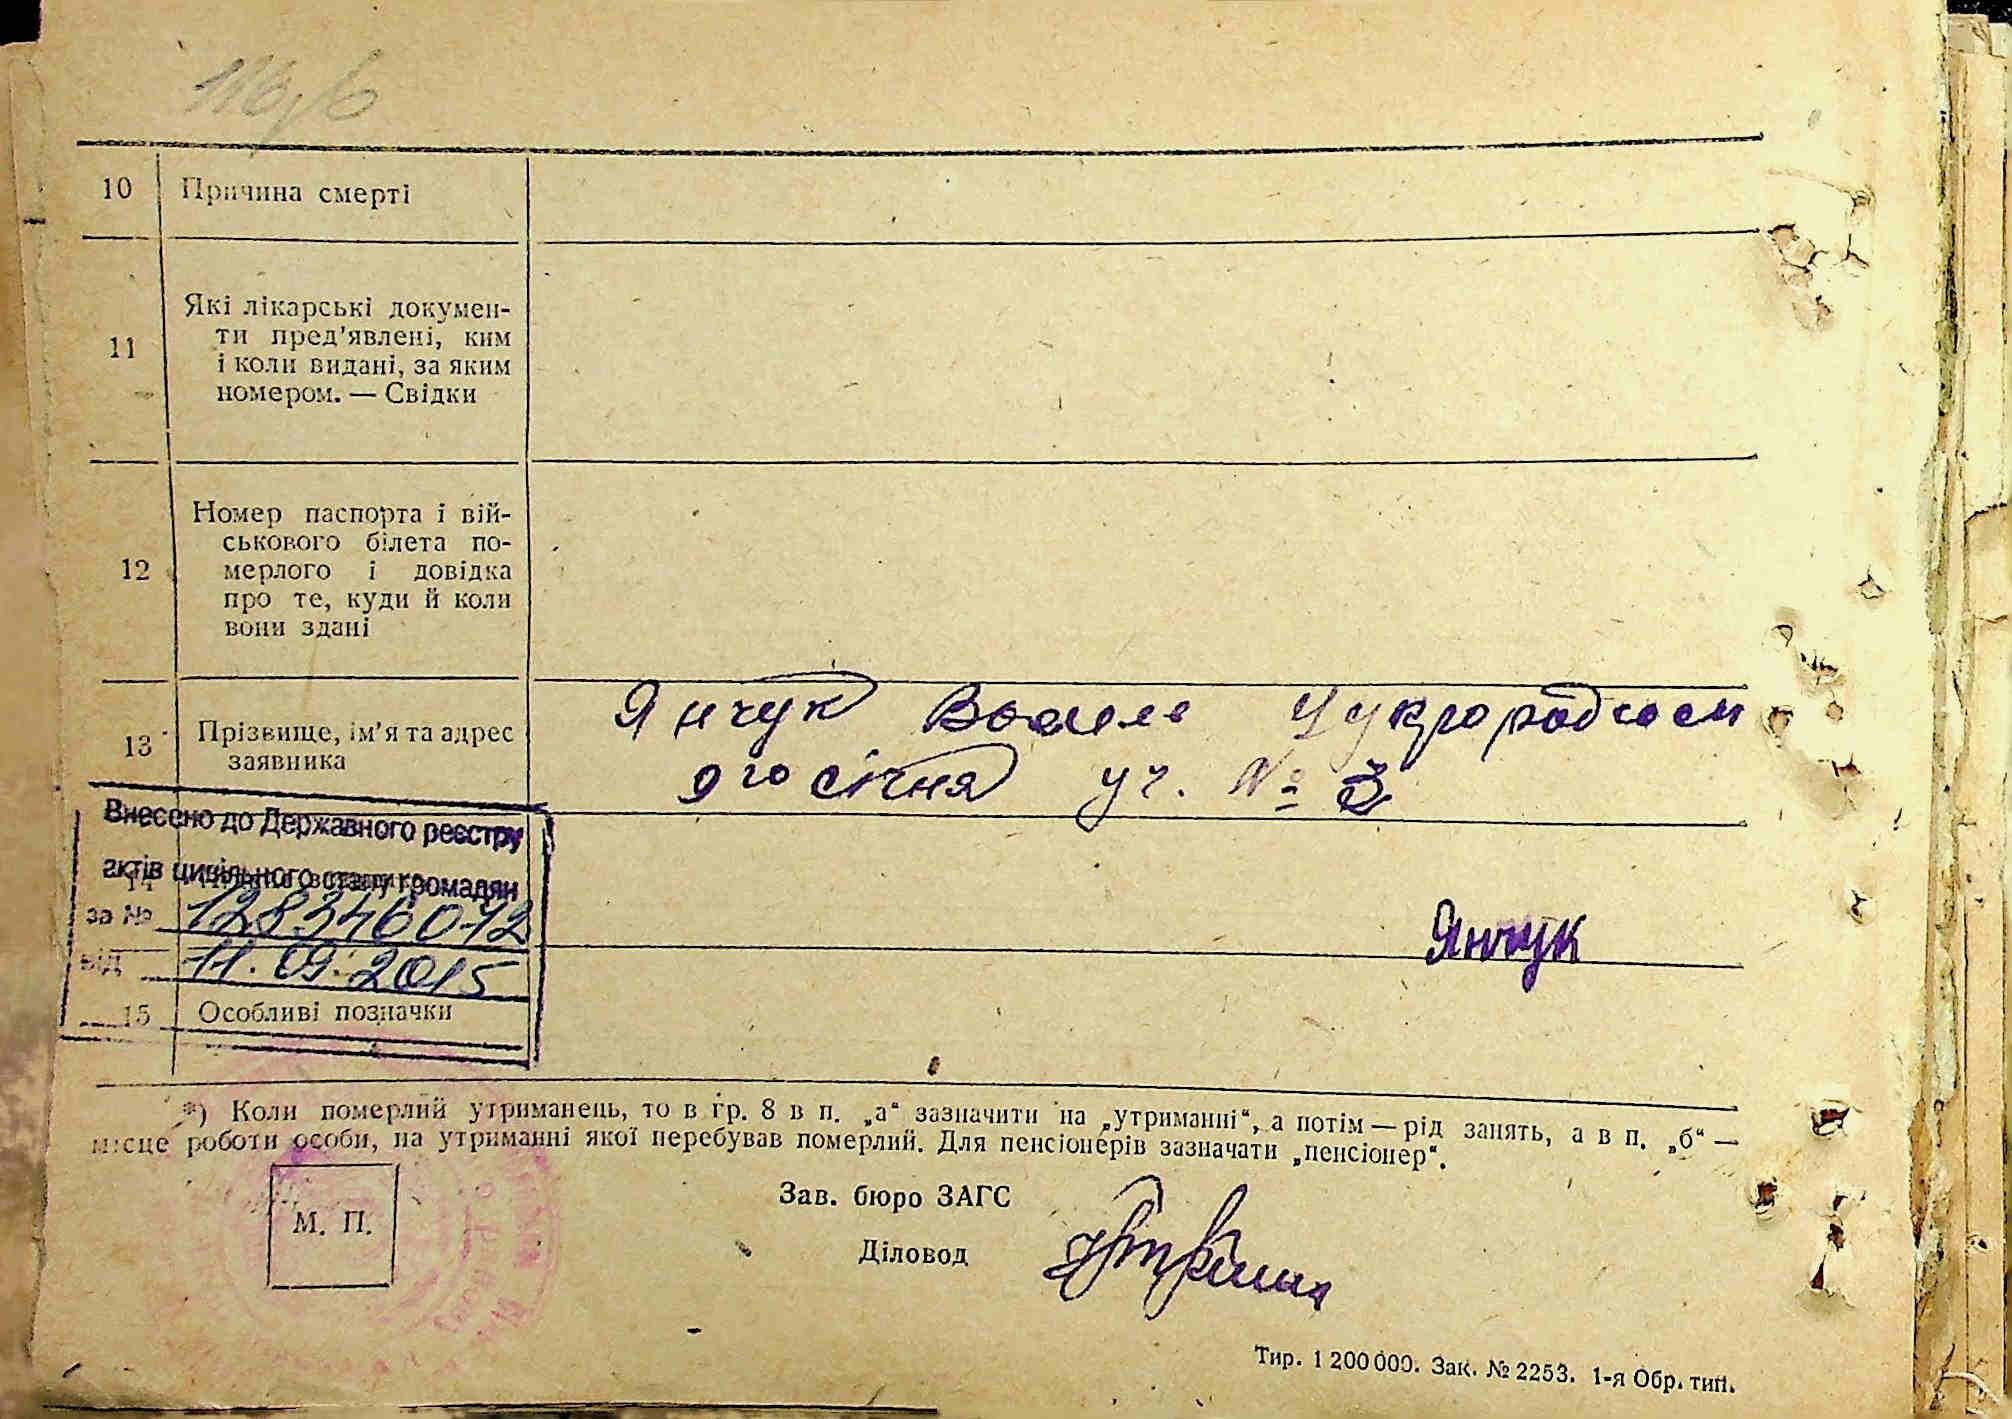 10 Причина смерті
11 Які лікарські докумен-
ти пред'явлені, ким
і коли видані, за яким
номером. — Свідки
12 Номер паспорта і вій-
ськового білета по-
мерлого і довідка
про те, куди й коли
вони здані
13 Прізвище, ім'я та адрес
заявника
Янчук
9го січня уч. № 3
Внесено до Державного реєстру
актів цивільного стану громадян
14
за № 128346072
від 11.09.2015
Янчук
15 Особливі позначки
*) Коли померлий утриманець, то в гр. 8 в п. „а“ зазначити на „утриманні“, а потім — рід занять, а в п. „б“ —
місце роботи особи, на утриманні якої перебував померлий. Для пенсіонерів зазначати „пенсіонер“.
М. П.
Зав. бюро ЗАГС
Діловод
Тир. 1 200 000. Зак. № 2253. 1-я Обр. тип.